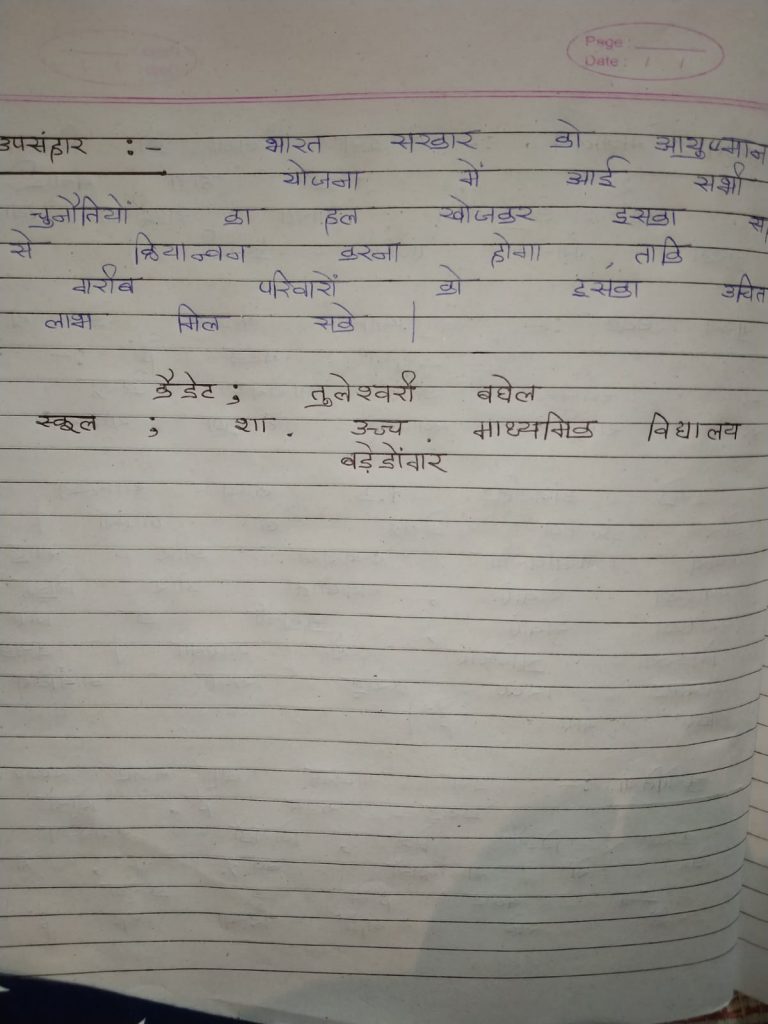 Page :
Date : / /
उपसंहार :- भारत सरकार को आयुष्मान
योजना में आई सभी
चुनौतियों का हल खोजकर इसका
से क्रियान्वन करना होगा ताकि
गरीब परिवारों को इसका उचित
लाभ मिल सके |
कैडेट ; तुलेश्वरी बघेल
स्कूल ; शा . उच्च माध्यमिक विद्यालय
बड़ेडोंगर